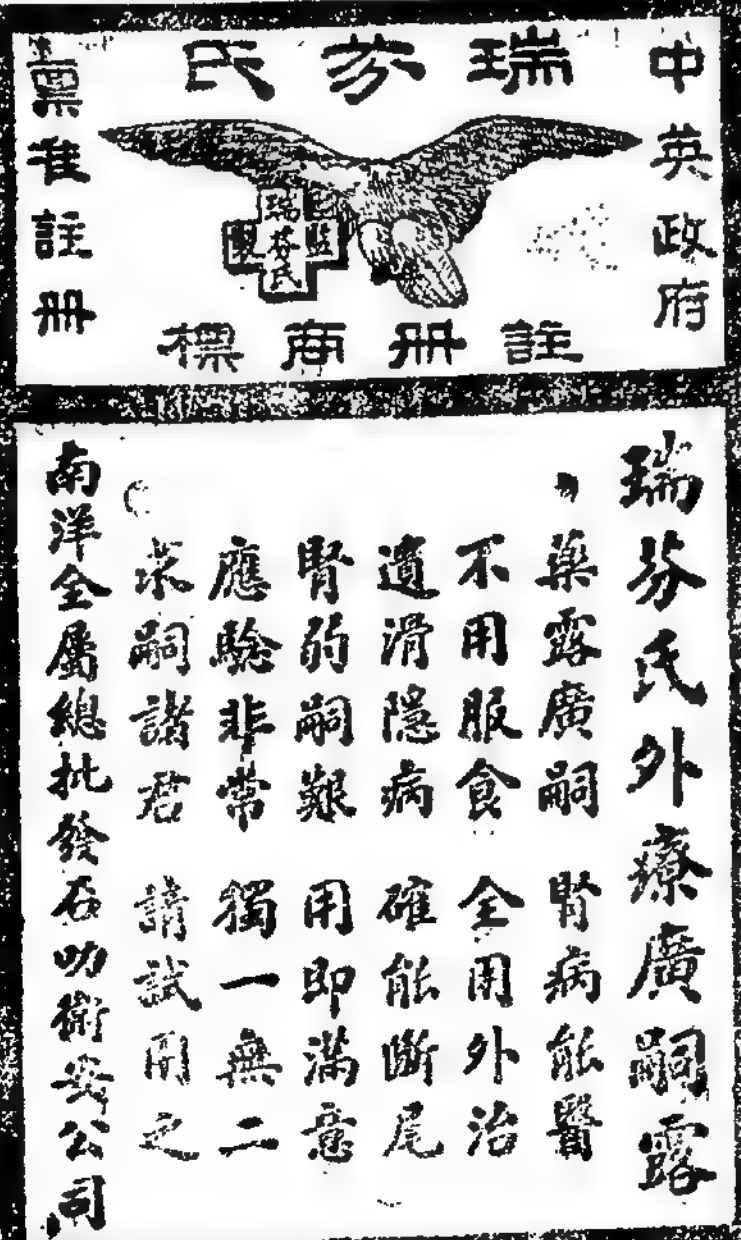 瑞芬氏
中英政府
稟准註册
瑞芬氏
監製
註册商標
瑞芬氏外療廣嗣露
藥露廣嗣 腎病能醫
不用服食 全用外治
遺滑隱病 確能斷尾
腎弱嗣艱 用即滿意
應驗非常 獨一無二
求嗣諸君 請試用之
南洋全屬總批發石叻衛安公司